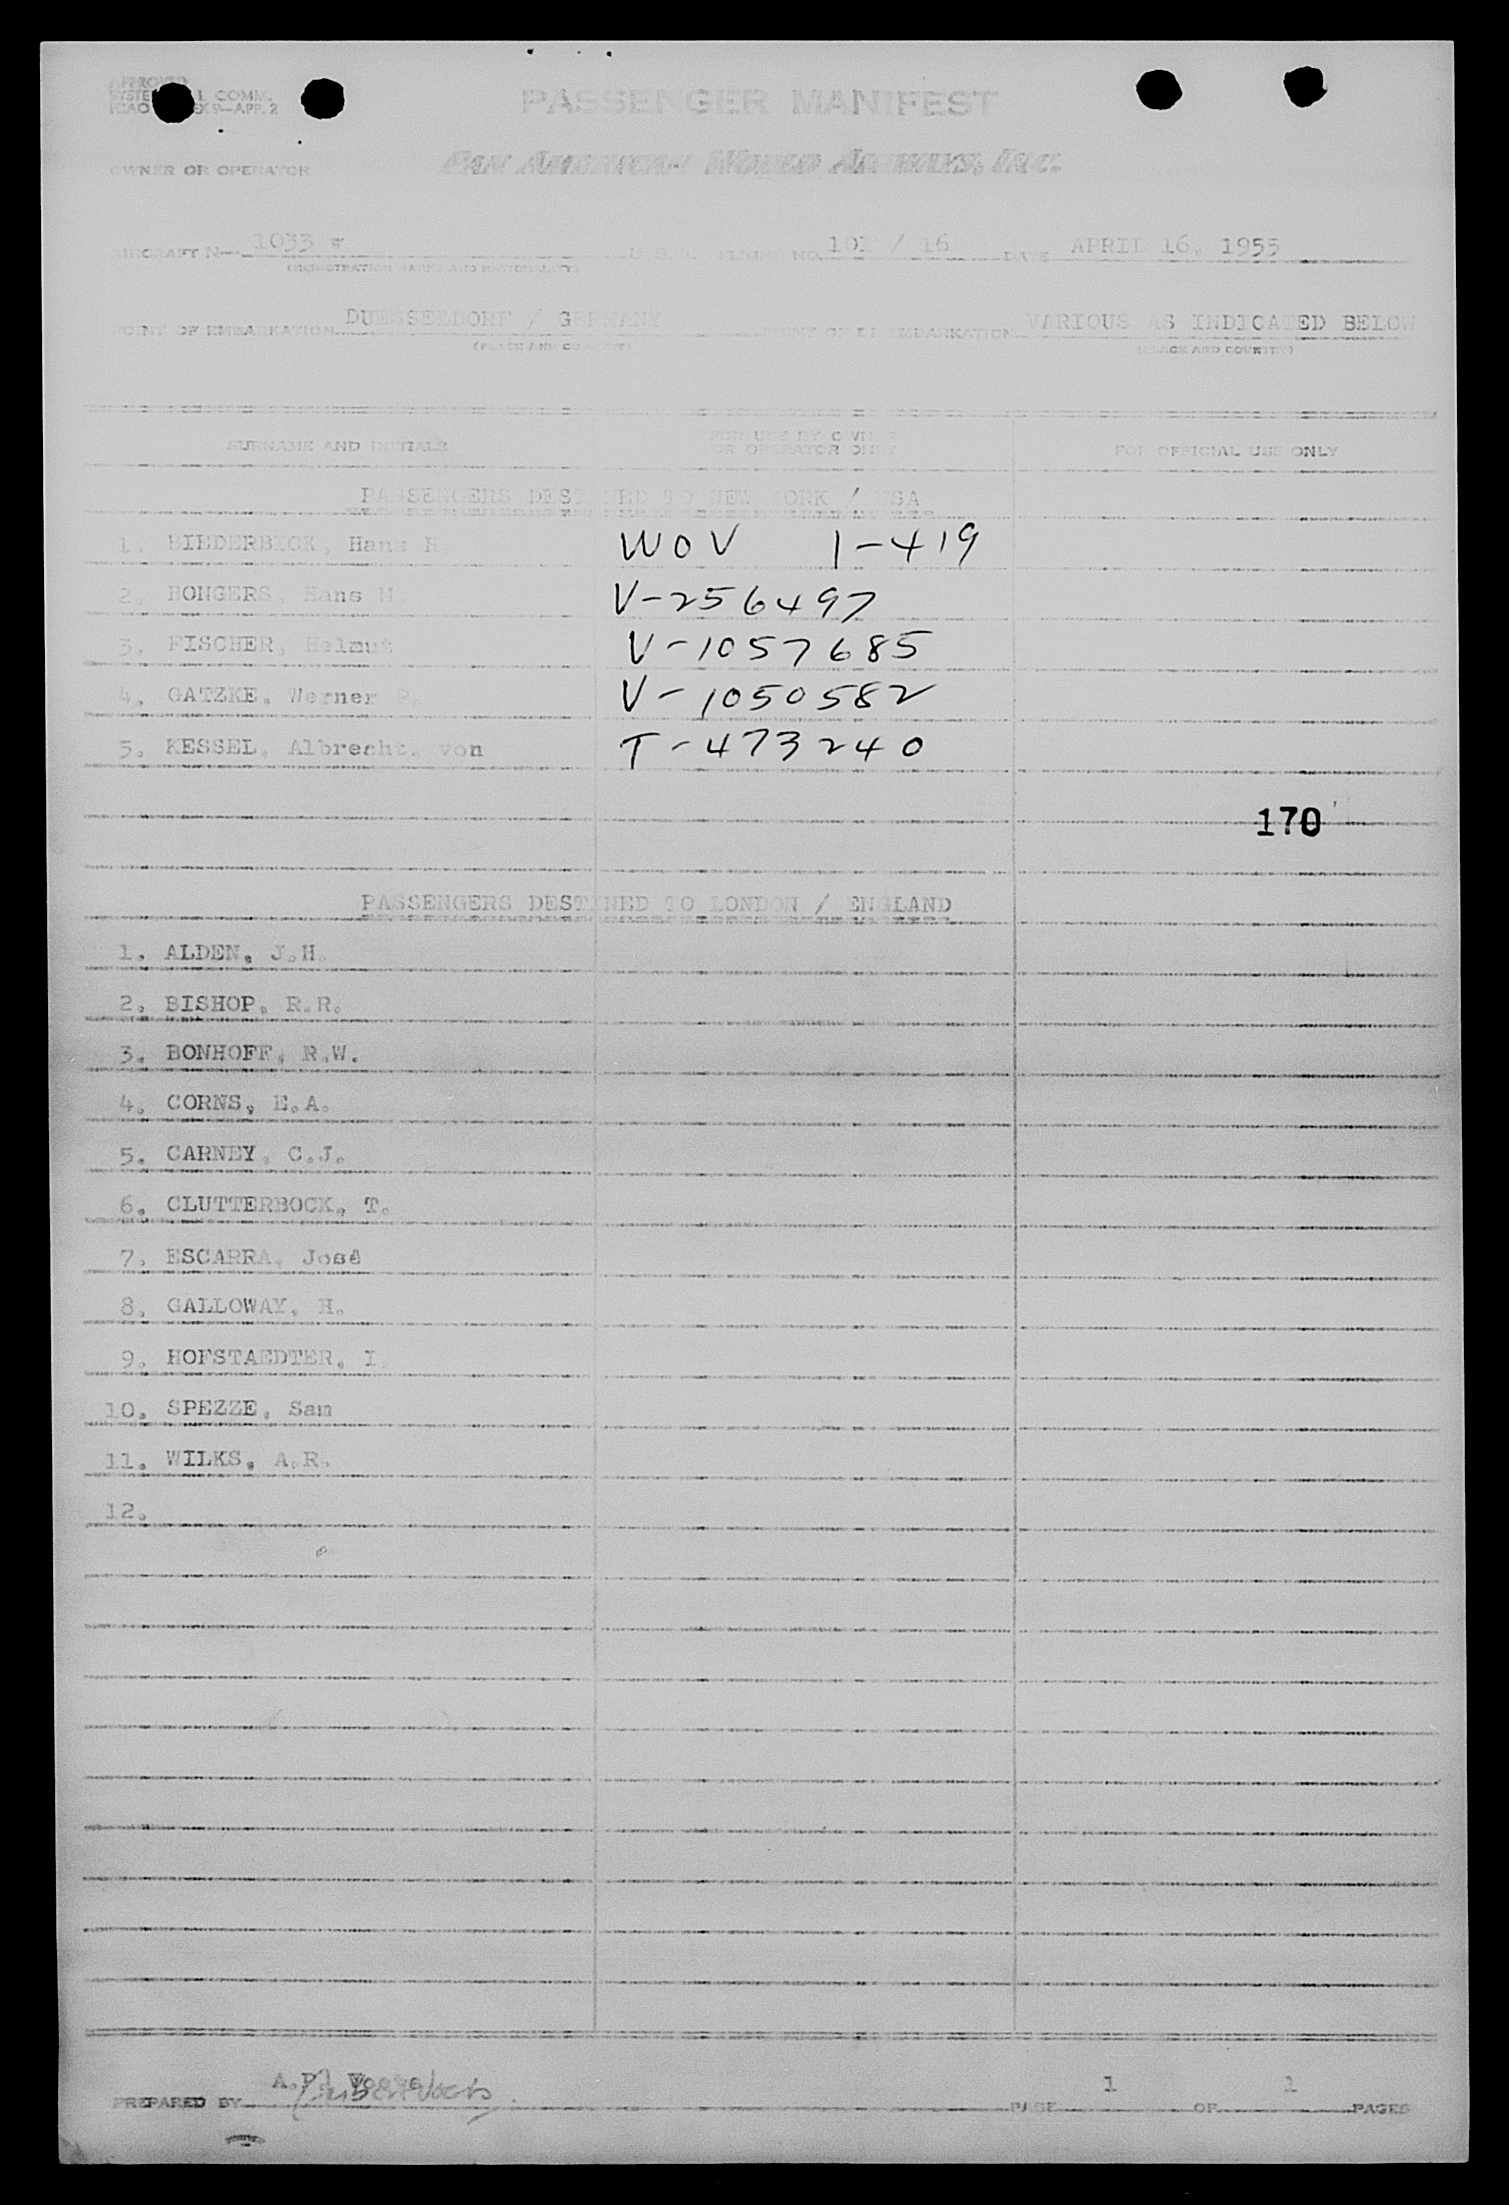 APPROVED
COMM.
ICAO APP. 2
PASSENGER MANIFEST
OWNER OR OPERATOR PAN AMERICAN WORLD AIRWAYS, INC.
AIRCRAFT 1033 FLIGHT NO. / 16 DATE APRIL 16, 1955
(REGISTRATION MARKS AND NATIONALITY)
POINT OF EMBARKATION DUESSELDORF / GERMANY POINT OF DISEMBARKATION VARIOUS AS INDICATED BELOW
(PLACE AND COUNTRY) (PLACE AND COUNTRY)
SURNAME AND INITIALS FOR USE BY OWNER OR OPERATOR ONLY FOR OFFICIAL USE ONLY
PASSENGERS DESTINED TO NEW YORK / USA
1. BIEDERBICK, Hans WOV 1-419
2. BONGERS, Hans V-256497
3. FISCHER, Helmut V-1057685
4. GATZKE, Werner V-1050582
5. KESSEL, Albrecht, von T-473240
170
PASSENGERS DESTINED TO LONDON / ENGLAND
1. ALDEN, J.H.
2. BISHOP, R.R.
3. BONHOFF, R.W.
4. CORNS, E.A.
5. CARNEY, C.J.
6. CLUTTERBOCK, T.
7. ESCARRA, José
8. GALLOWAY, H.
9. HOFSTAEDTER, I.
10. SPEZZE, Sam
11. WILKS, A.R.
12.
PREPARED BY PAGE 1 OF 1 PAGES